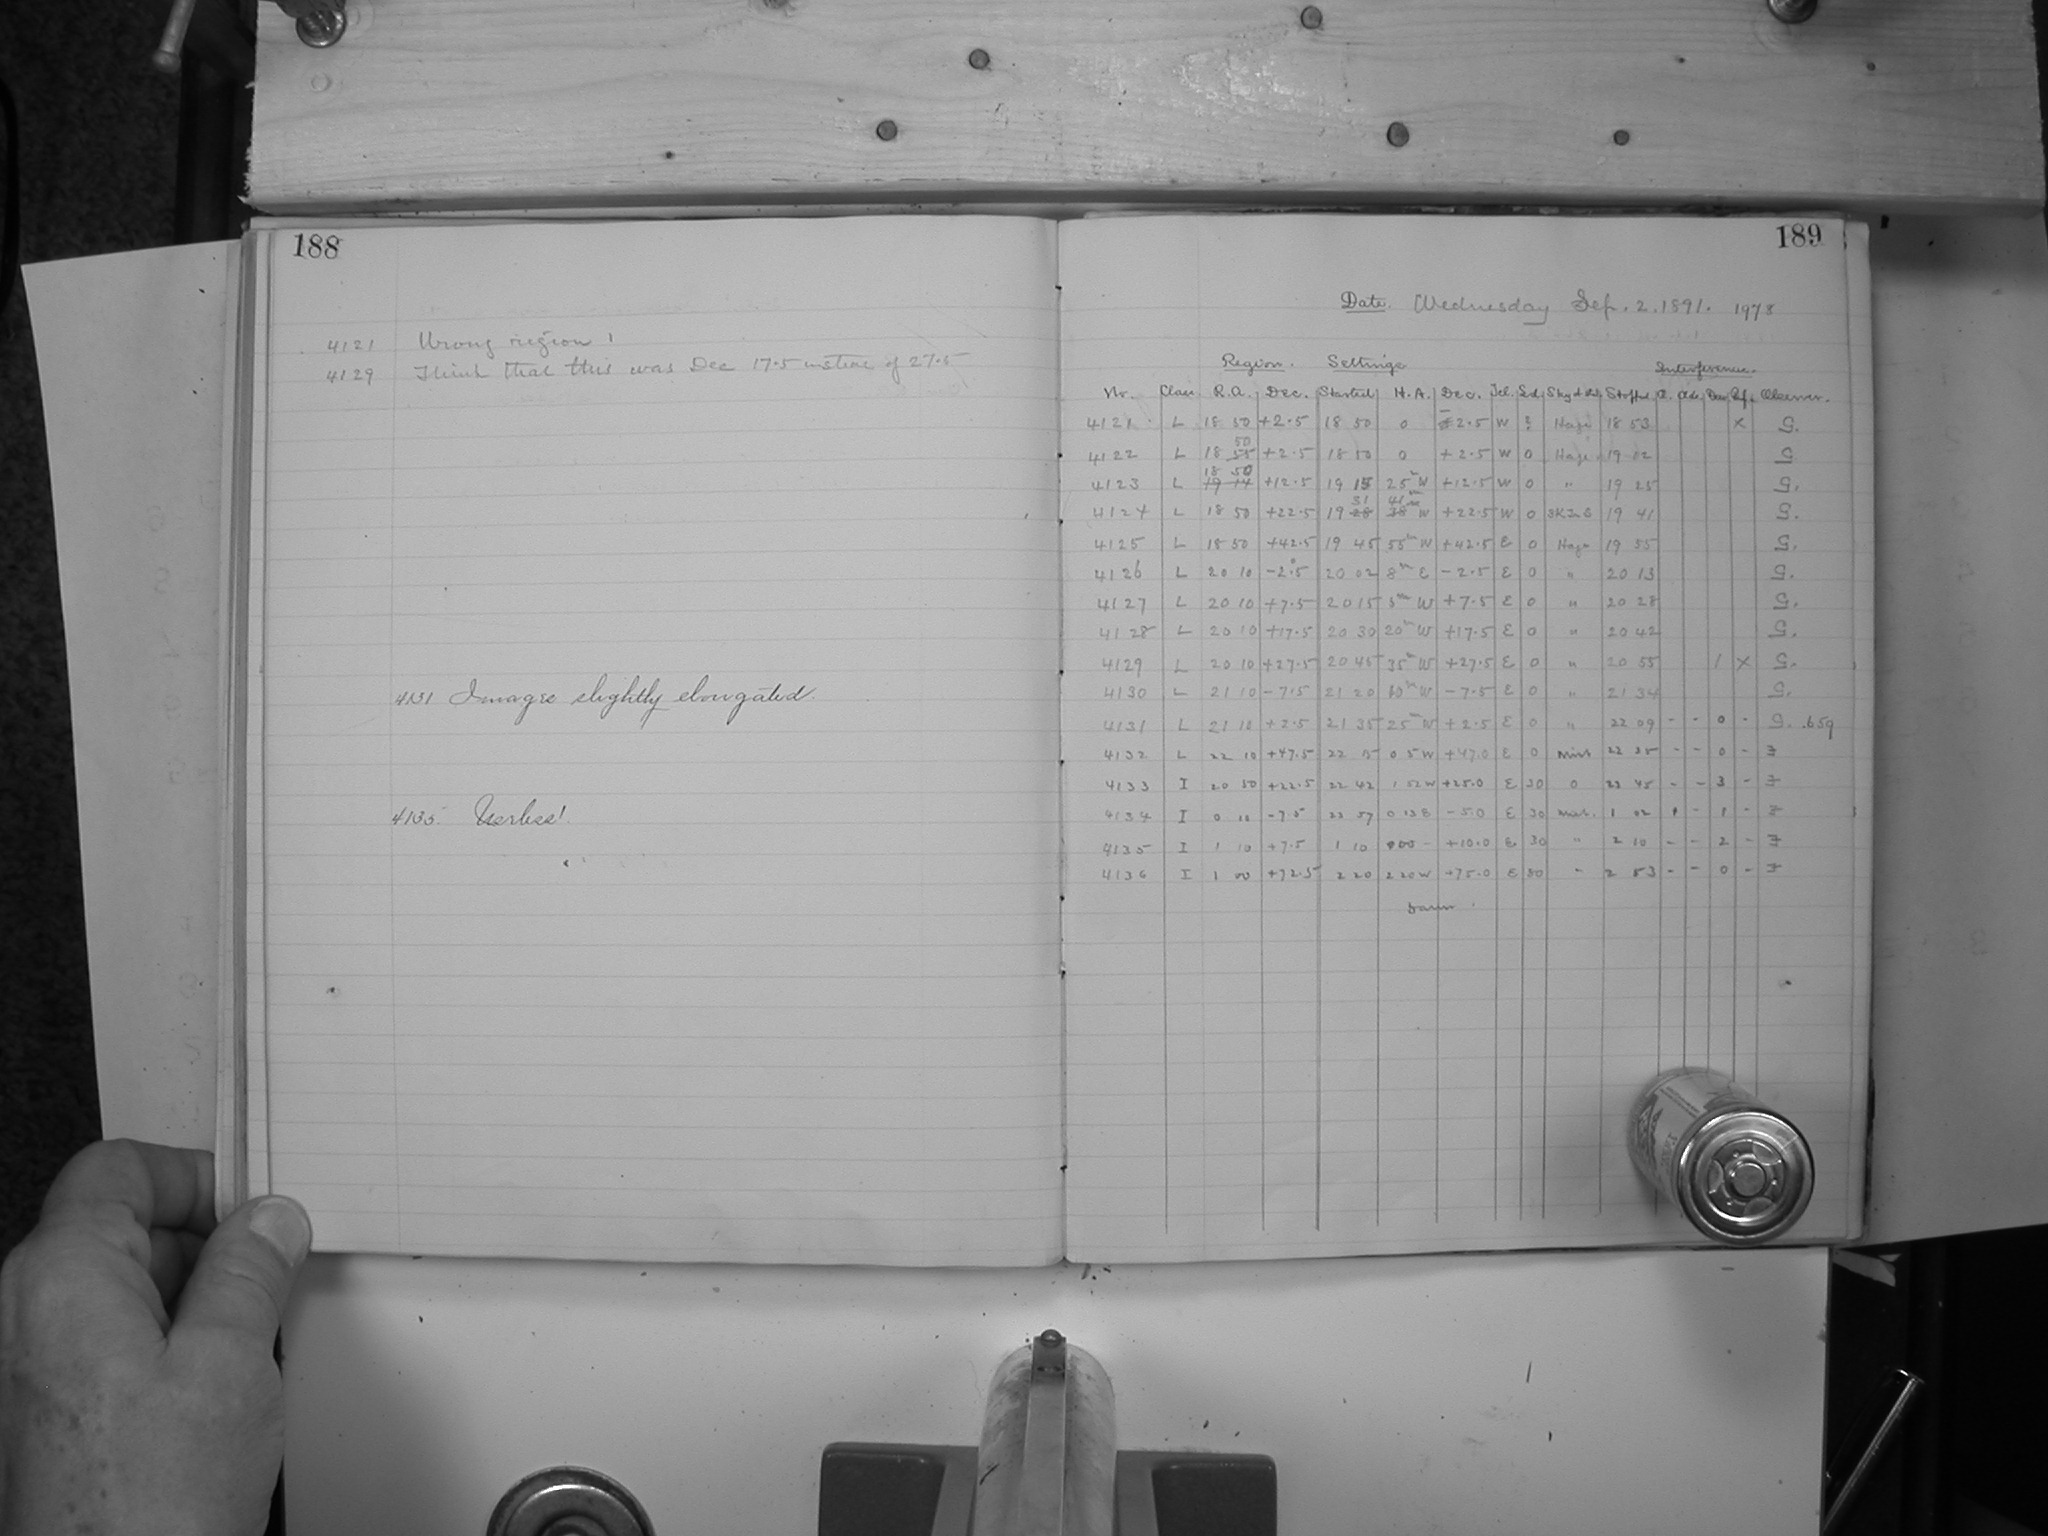 188
4121 Wrong region!
4129 Think that this was Dec 17.5 instead of 27.5
4131 Images slightly elongated.
4135. Useless!
189
Date. Wednesday Sep. 2. 1891. 1978
Region. Settings Interference.
No. Class R.A. Dec. Started H.A. Dec. Tel. Sid. Stopped Observer.
4121 L 18 50 +2.5 18 50 0 2.5 W Haze 18 53 x S.
4122 L 18 55 50 +2.5 18 50 0 +2.5 W 0 Haze 19 02 S
4123 L 19 14 18 50 +12.5 19 15 25m W +12.5 W 0 " 19 25 S.
4124 L 18 50 +22.5 19 28 31 38 41m W +22.5 W 0 19 41 S.
4125 L 18 50 +42.5 19 45 55m W +42.5 E 0 Haze 19 55 S.
4126 L 20 10 -2.5 20 02 8m E -2.5 E 0 " 20 13 S.
4127 L 20 10 +7.5 20 15 5m W +7.5 E 0 " 20 28 S.
4128 L 20 10 +17.5 20 30 20m W +17.5 E 0 " 20 42 S.
4129 L 20 10 +27.5 20 45 35m W +27.5 E 0 " 20 55 1 x S.
4130 L 21 10 -7.5 21 20 10m W -7.5 E 0 " 21 34 S.
4131 L 21 10 +2.5 21 35 25m W +2.5 E 0 " 22 09 - - 0 - S. .659
4132 L 22 10 +47.5 22 15 0 5 W +47.0 E 0 Mist 22 35 - - 0 - F
4133 I 20 50 +22.5 22 42 1 52 W +25.0 E 30 0 23 45 - - 3 - F
4134 I 0 10 -7.5 23 57 0 13 E -5.0 E 30 Mist. 1 02 - 1 - F
4135 I 1 10 +7.5 1 10 000 - +10.0 E 30 " 2 10 - - 2 - F
4136 I 1 00 +72.5 2 20 2 20 W +75.0 E 30 " 2 53 - - 0 - F
Dawn